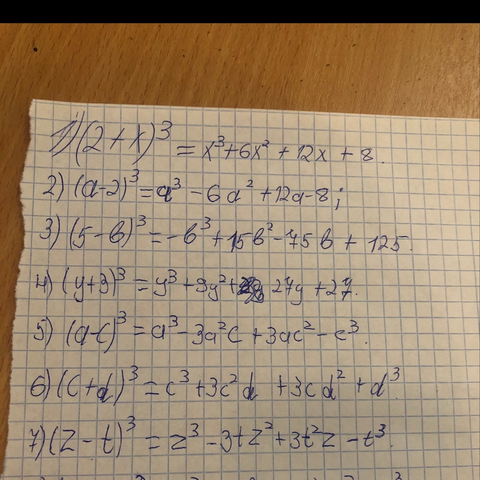 1) (2+x)³ = x³+6x²+12x+8.
2) (a-2)³=a³-6a²+12a-8;
3) (5-b)³=-b³+15b²-75b+125.
4) (y+3)³=y³+9y²+27y+27.
5) (a-c)³=a³-3a²c+3ac²-c³.
6) (c+d)³=c³+3c²d+3cd²+d³
7) (z-t)³=z³-3tz²+3t²z-t³.